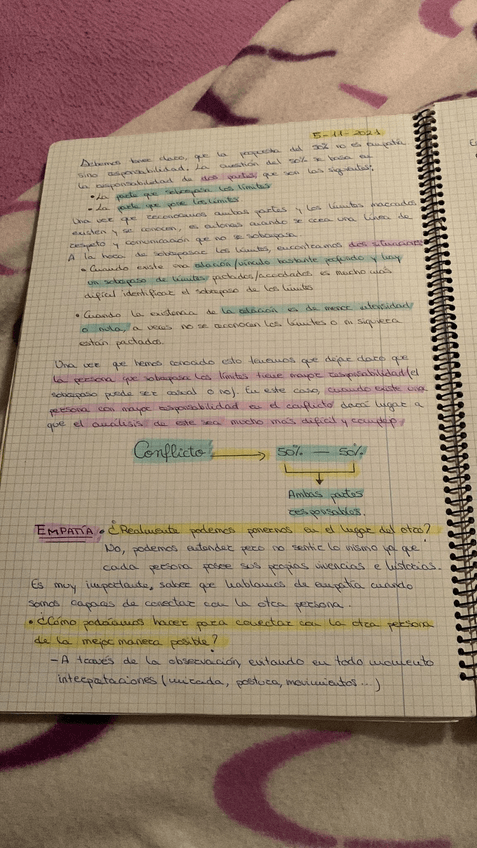 5-11-2021
Debemos tener claro, que la propuesta del 50% no es empatía
sino responsabilidad. La cuestión del 50% se basa en
la responsabilidad de dos partes que son las siguientes:
• La parte que sobrepasa los límites
- La parte que pone los límites
Una vez que reconocemos ambas partes y los límites marcados
existen y se conocen, es entonces cuando se crea una línea de
respeto y comunicación que no se sobrepasa.
A la hora de sobrepasar los límites, encontramos dos situaciones
• Cuando existe una relación/vínculo bastante pequeño y hay
un sobrepaso de límites pactados/acordados es mucho más
difícil identificar el sobrepaso de los límites
• Cuando la existencia de la relación es de menor intensidad
o nula, a veces no se reconocen los límites o ni siquiera
están pactados.
Una vez que hemos conocido esto tenemos que dejar claro que
la persona que sobrepasa los límites tiene mayor responsabilidad (el
sobrepaso puede ser casual o no). En este caso, cuando existe una
persona con mayor responsabilidad en el conflicto dará lugar a
que el análisis de este sea mucho más difícil y
Conflicto → 50% — 50%
Ambas partes
responsables.
EMPATÍA • ¿Realmente podemos ponernos en el lugar del otro?
No, podemos entender pero no sentir lo mismo ya que
cada persona posee sus propias vivencias e historias.
Es muy importante, saber que hablamos de empatía cuando
somos capaces de conectar con la otra persona.
• ¿Cómo podríamos hacer para conectar con la otra persona
de la mejor manera posible?
- A través de la observación, evitando en todo momento
interpretaciones (mirada, postura, movimientos...)